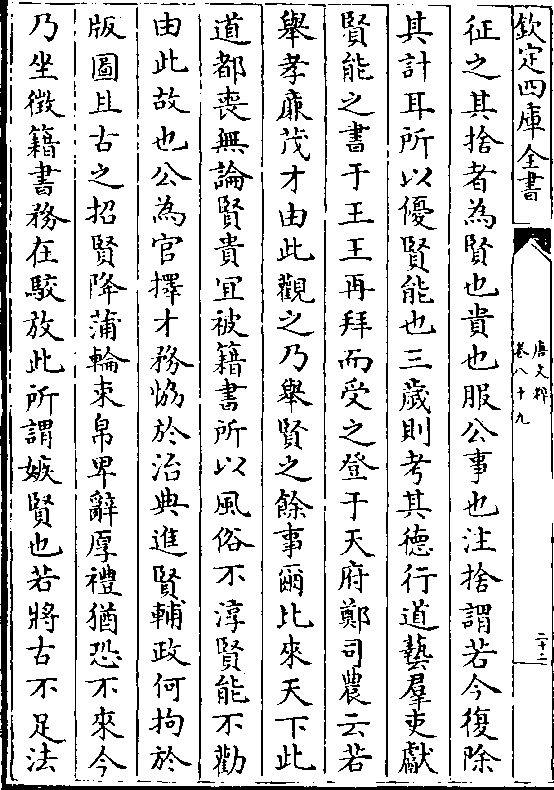 欽定四庫全書
唐文粹
卷八十九
二十二
征之其捨者為賢也貴也服公事也注捨謂若今復除
其計耳所以優賢能也三歲則考其德行道藝羣吏獻
賢能之書于王王再拜而受之登于天府鄭司農云若
舉孝廉茂才由此觀之乃舉賢之餘事爾比來天下此
道都喪無論賢貴宜被籍書所以風俗不淳賢能不勸
由此故也公為官擇才務恊於治典進賢輔政何拘於
版圖且古之招賢降蒲輪束帛卑辭厚禮猶恐不來今
乃坐徵籍書務在駁放此所謂嫉賢也若將古不足法